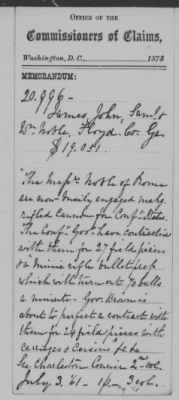 OFFICE OF THE
Commissioners of Claims,
Washington, D. C., 1875
MEMORANDUM:
20.996 -
James, John, Saml &
Wm Noble, Floyd Co. Ga
$19.051.
"The Messrs Noble of Rome
are now busily engaged making
rifled cannon for Conf. States
The Conf. Govt. have contracted
with them for 27 field pieces
& a minie rifle bullet press
which will turn out 70 balls
a minute. Gov. Brown is
about to perfect a contract with
them for 24 field pieces with
carriages & Caissons &c &c
See Charleston Courier 2nd vol.
July 3. '61 - 1p. 3 col.